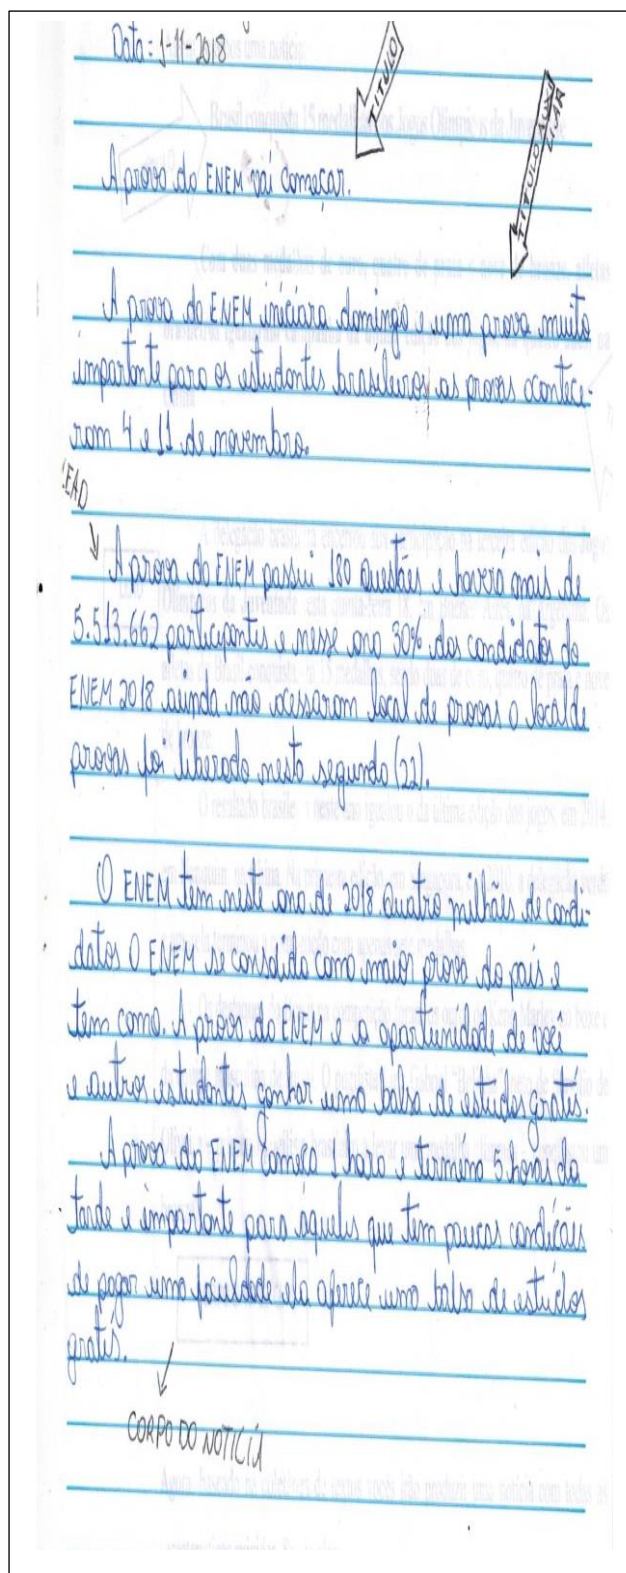 Data: 1-11-2018
TITULO
TITULO AUXI
LIAR
A prova do ENEM vai começar.
A prova do ENEM iniciara domingo e uma prova muito
importante para os estudantes brasileiros as provas acontece-
ram 4 e 11 de novembro.
LEAD
A prova do ENEM possui 180 questões e havera mais de
5.513.662 participantes e nesse ano 30% dos candidatos do
ENEM 2018 ainda não acessaram local de provas o local de
provas foi liberado nesta segunda (22).
O ENEM tem neste ano de 2018 quatro milhões de candi-
datos O ENEM se consolida como maior prova do país e
tem como. A prova do ENEM e a oportunidade de você
e outros estudantes ganhar uma bolsa de estudos gratis.
A prova do ENEM começa 1 hora e termina 5 horas da
tarde e importante para aqueles que tem poucas condições
de pagar uma faculdade ela oferece uma bolsa de estudos
gratis.
CORPO DO NOTICIA